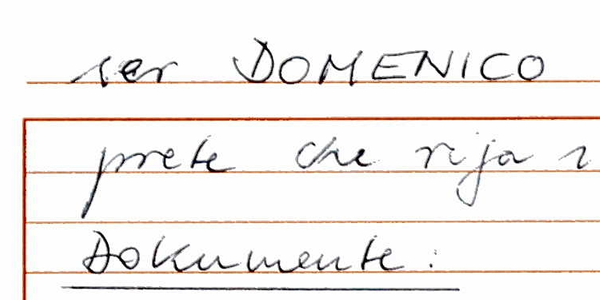 ser DOMENICO
prete che rija
Dokumente: